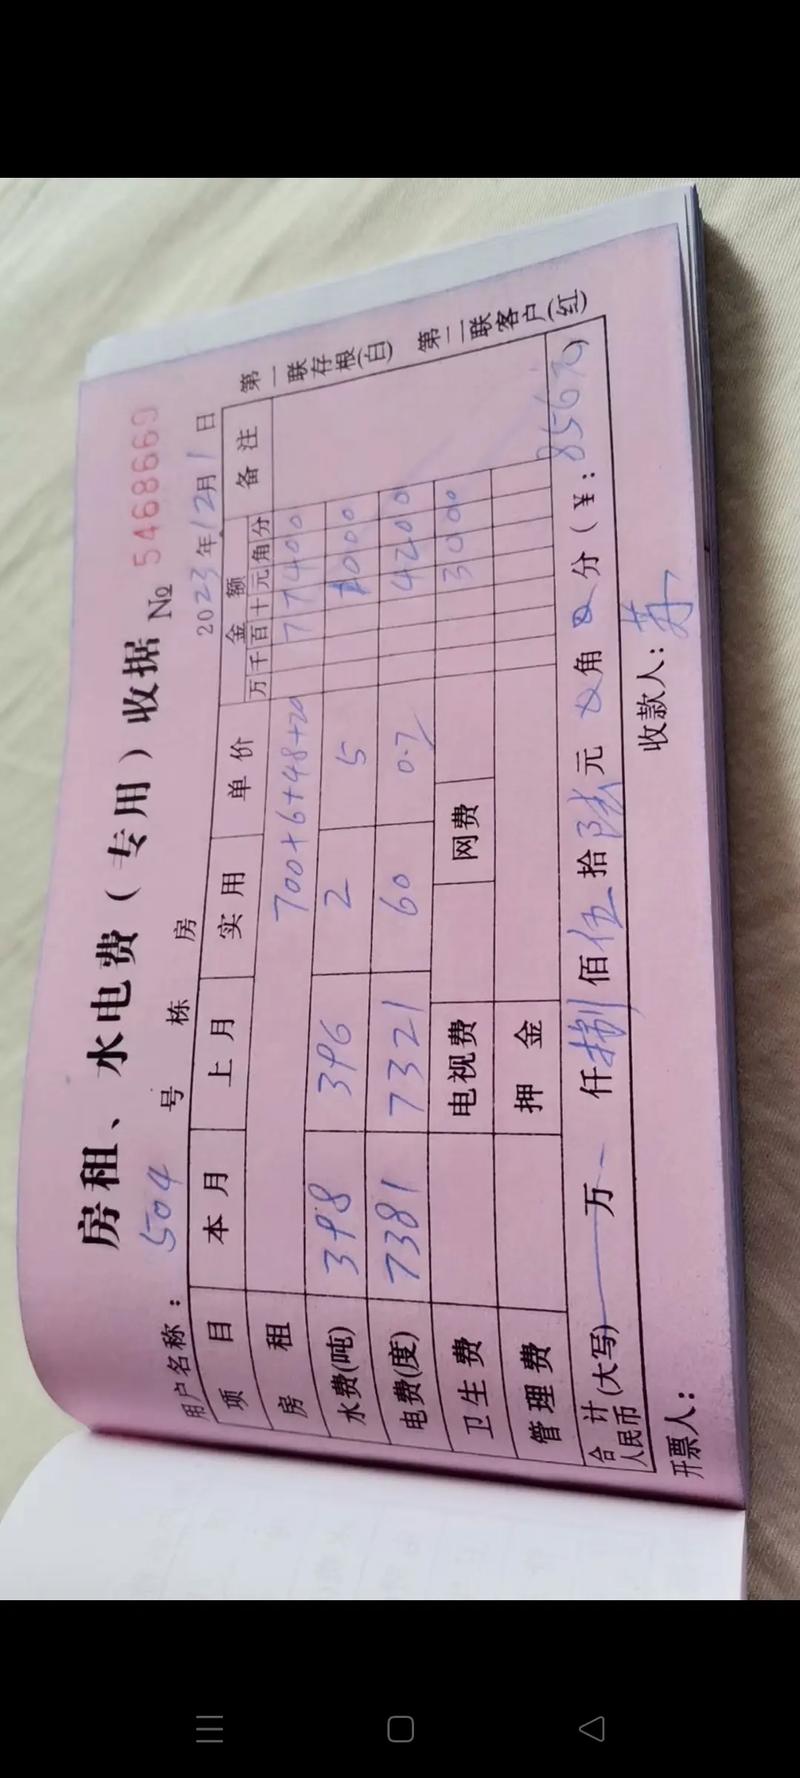 房租、水电费（专用）收据 № 5468669
用户名称：504 号 栋 房 2023年12月1日
项目 本月 上月 实用 单价 金额 备注
万 千 百 十 元 角 分
房租 700+6+48+20 77400
水费(吨) 398 396 2 5 1000
电费(度) 7381 7321 60 0.7 4200
卫生费 电视费 网费 3000
管理费 押金
合计人民币(大写) 万 仟 捌 佰 伍 拾 陆 元 角 分（￥：856元)
开票人： 收款人：
第一联存根(白) 第二联客户(红)